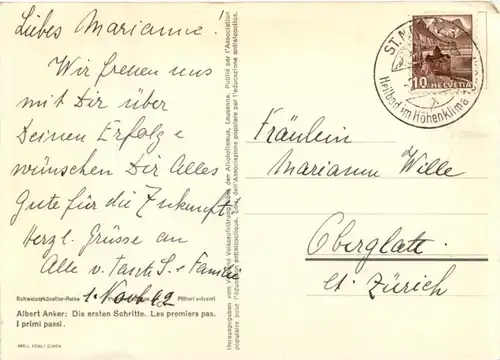 Liebes Marianne!
Wir freuen uns
mit Dir über
Deinen Erfolg &
wünschen Dir Alles
Gute für die Zukunft
Herzl. Grüsse an
Alle v. Tante S. & Familie
1. Nov. 42
Schweizerkünstler-Reihe
Pittori svizzeri
Albert Anker: Die ersten Schritte. Les premiers pas.
I primi passi.
ORELL FÜSSLI ZÜRICH
Herausgegeben vom
den Alkoholismus, Lausanne. Publié par l'Association
populaire pour l'éducation antialcoolique.
dell'Associazione popolare per l'educazione antialcoolica.
ST. M
Heilbad im Höhenklima
10 HELVETIA
Fräulein
Mariann Wille
Oberglatt
Kt. Zürich